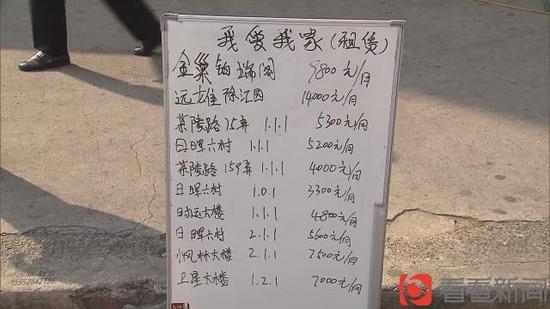 我爱我家(租赁)
金巢铂瑞阁 9800元/月
远雄徐汇园 14000元/月
茶陵路75弄 1.1.1 5300元/月
日晖六村 1.1.1 5200元/月
茶陵路159弄 1.1.1 4000元/月
日晖六村 1.0.1 3300元/月
时运大楼 1.1.1 4800元/月
日晖六村 2.1.1 5600元/月
枫林大楼 2.1.1 7500元/月
卫星大楼 1.2.1 7000元/月
看看新闻